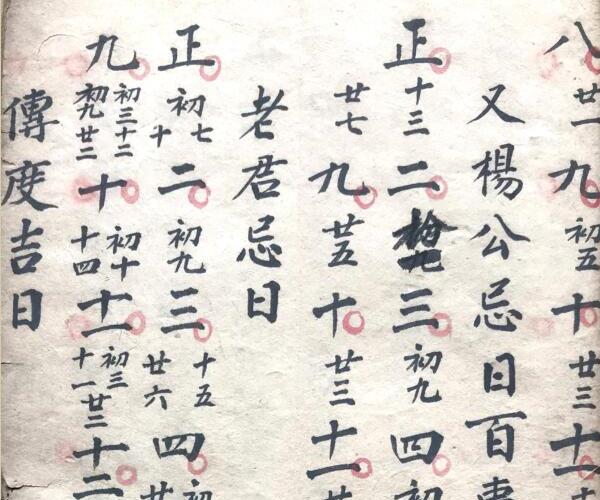 八廿一九初五十廿三十一
又楊公忌日百事
正十三二三初九四初
廿七九廿五十廿三十一廿
老君忌日
正初七十二初九三十五廿六四初廿
九初三十二初九廿二十初十十四十一初三十一十二
傳度吉日